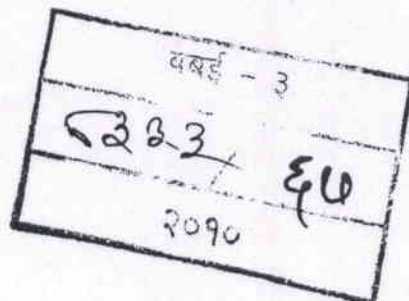 बबई - ३
८३३३/ ६७
२०१०